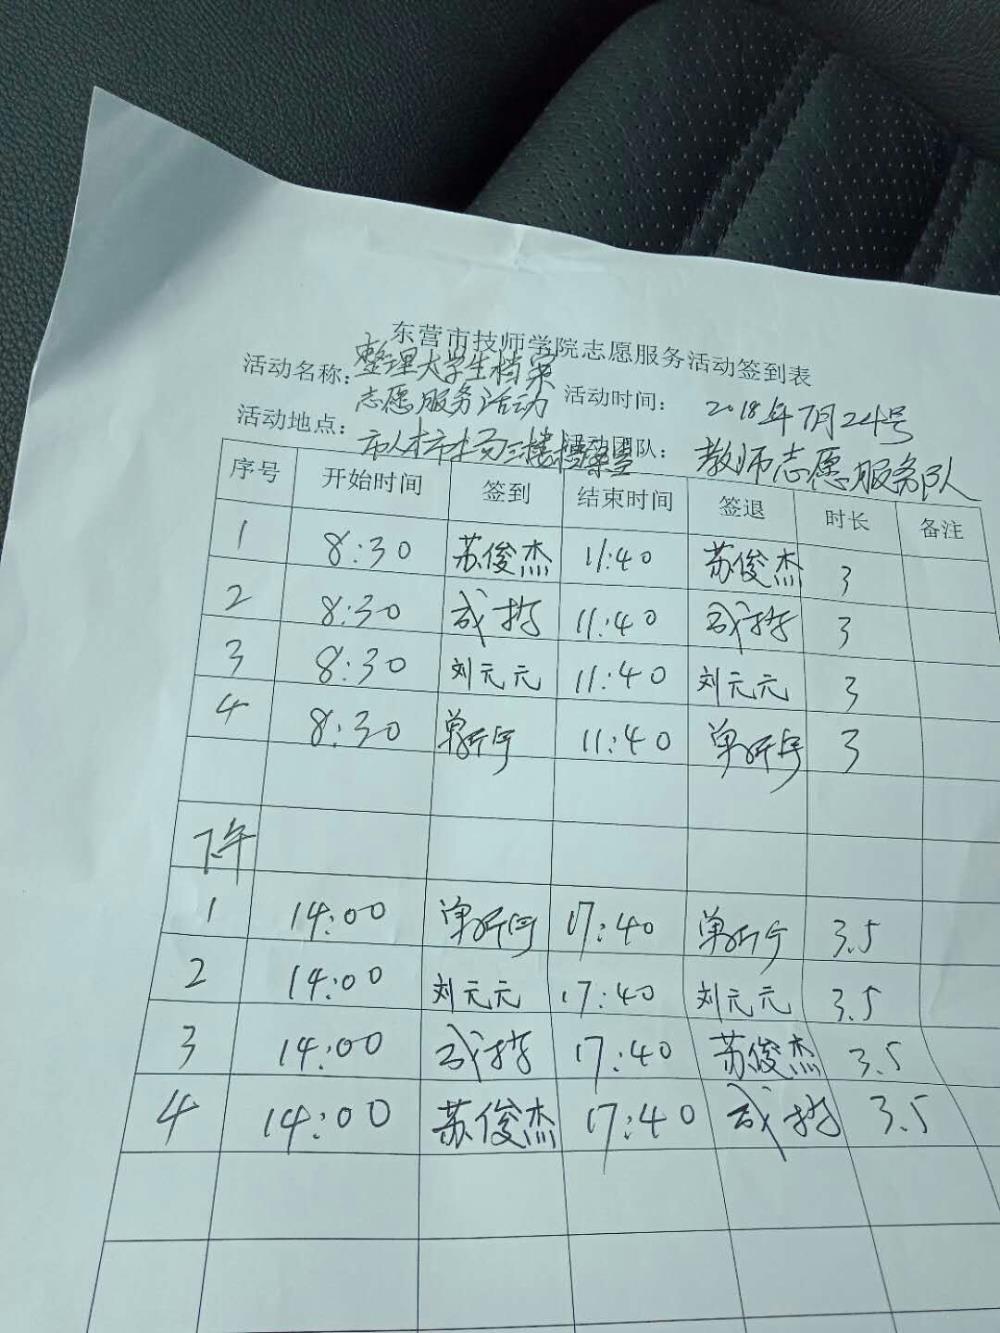 东营市技师学院志愿服务活动签到表
活动名称：整理大学生档案志愿服务活动 活动时间： 2018年7月24号
活动地点：市人才市场三楼 活动团队： 教师志愿服务队
序号 开始时间 签到 结束时间 签退 时长 备注
1 8:30 苏俊杰 11:40 苏俊杰 3
2 8:30 11:40 3
3 8:30 刘元元 11:40 刘元元 3
4 8:30 11:40 3
下午
1 14:00 17:40 3.5
2 14:00 刘元元 17:40 刘元元 3.5
3 14:00 17:40 苏俊杰 3.5
4 14:00 苏俊杰 17:40 3.5